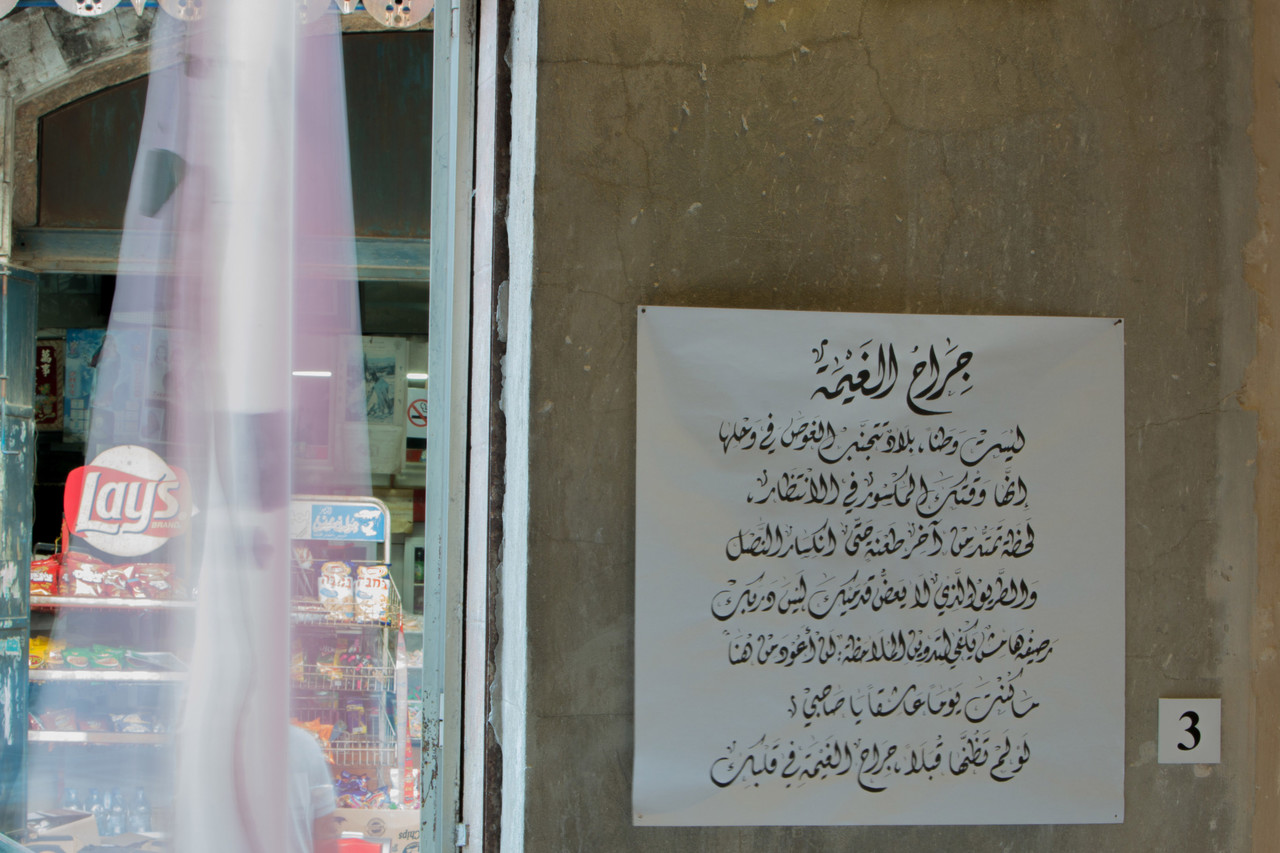 جِرَاحُ الغَيْمَة
ليست وَطناً، بلادٌ تتجنب الغوص في وحلها
إنَّها وقتك المكسور في الانتظار،
لحظة تمتد من آخر طعنة حتَّى انكسار النصل
وَالطَّريق الذي لا يعض قدميك ليس دربك
رصيفه هامش يكفي لتدوين الملاحظة: لن أعود من هنا
ما كنت يَوماً عاشقاً يا صاحبي؛
لو لم تظنَّها قُبلاً، جراح الغَيْمَة في قلبك
3
Lay's
BRAND
במבה
Chips